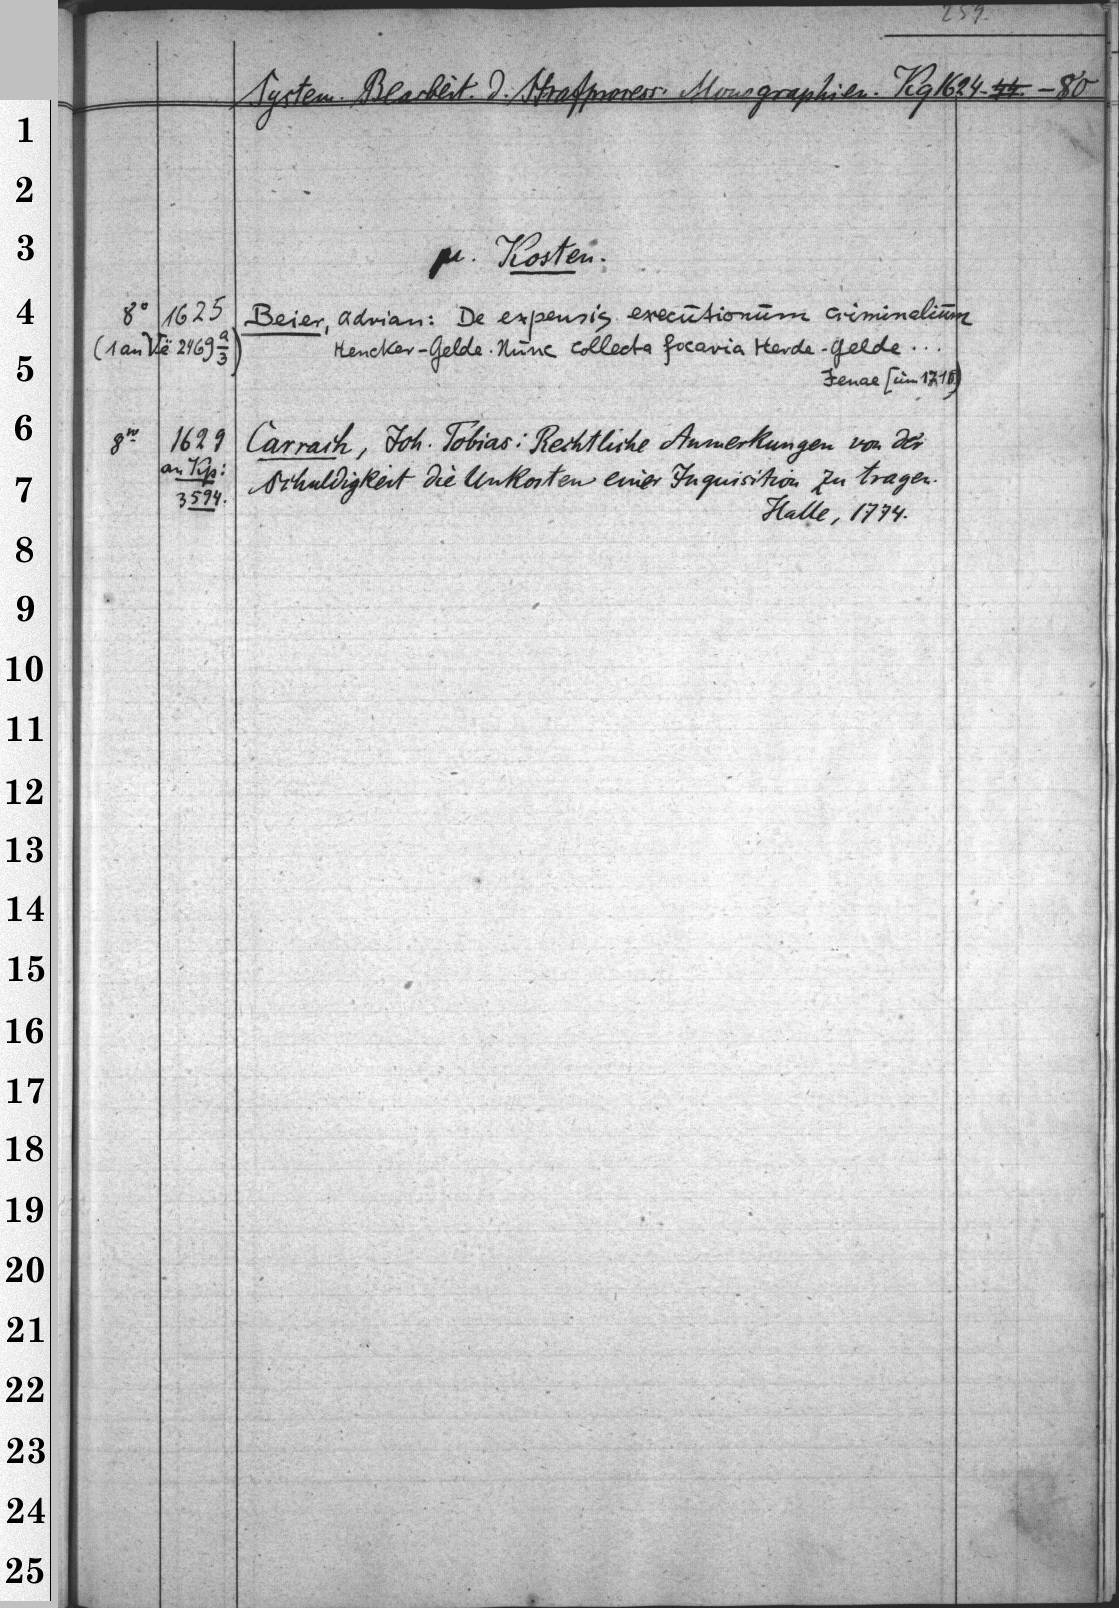 259.
System. Bearbeit. d. Strafprozess. Monographien. Kg 1624-44. - 80
µ. Kosten.
8° 1625 Beier, Adrian: De expensis executionum criminalium
(1 an Vë 2469 a/3) Hencker-Gelde. Nunc collecta focaria Herde-Gelde ...
Jenae [um 1716]
8vo 1629 Carrach, Joh. Tobias: Rechtliche Anmerkungen von der
an Kp: Schuldigkeit die Unkosten einer Inquisition zu tragen.
3594. Halle, 1774.
1
2
3
4
5
6
7
8
9
10
11
12
13
14
15
16
17
18
19
20
21
22
23
24
25